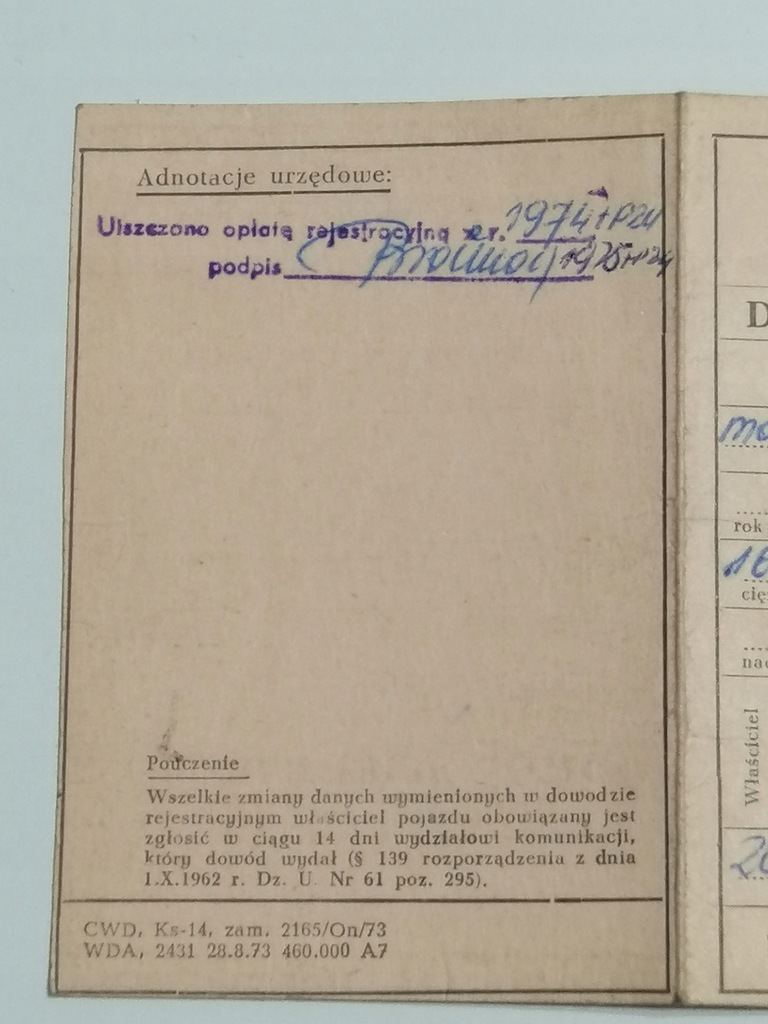 Adnotacje urzędowe:
Uiszczono opłatę rejestracyjną za r. 1974+PZU
podpis 1975+PZU
Pouczenie
Wszelkie zmiany danych wymienionych w dowodzie
rejestracyjnym właściciel pojazdu obowiązany jest
zgłosić w ciągu 14 dni wydziałowi komunikacji,
który dowód wydał (§ 139 rozporządzenia z dnia
1.X.1962 r. Dz. U. Nr 61 poz. 295).
CWD, Ks-14, zam. 2165/On/73
WDA, 2431 28.8.73 460.000 A7
D
mo
rok
16
cię
nad
Właściciel